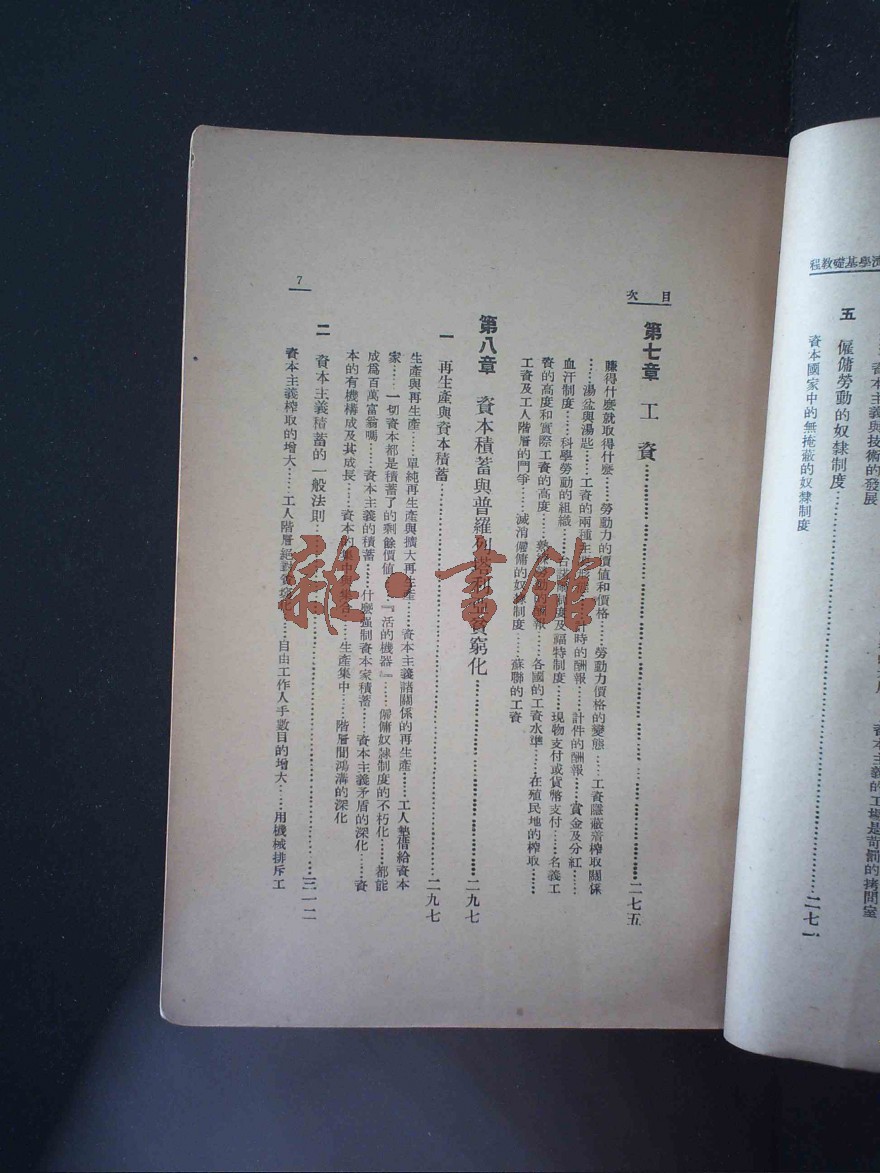 濟學基礎教程
資本主義與技術的發展
資本主義的工場是苛罰的拷問室
五 僱傭勞動的奴隸制度……二七一
資本國家中的無掩蔽的奴隸制度
目次
第七章 工資……二七五
賺得什麼就取得什麼……勞動力的價值和價格……勞動力價格的變態……工資隱蔽着榨取關係
……湯盆與湯匙……工資的兩種主要形態……計時的酬報……計件的酬報……賞金及分紅……
血汗制度……科學勞動的組織……制度及福特制度……現物支付或貨幣支付……名義工
資的高度和實際工資的高度……勞動的酬報……各國的工資水準……在殖民地的榨取……
工資及工人階層的鬥爭……滅消僱傭的奴隸制度……蘇聯的工資
第八章 資本積蓄與普羅列塔利亞貧窮化……二九七
一 再生產與資本積蓄……二九七
生產與再生產……單純再生產與擴大再生產……資本主義諸關係的再生產……工人墊借給資本
家……一切資本都是積蓄了的剩餘價值……『活的機器』……僱傭奴隸制度的不朽化……都能
成爲百萬富翁嗎……資本主義的積蓄……什麼强制資本家積蓄……資本主義矛盾的深化……資
本的有機構成及其成長……資本的集中與集合……生產集中……階層間鴻溝的深化
二 資本主義積蓄的一般法則……三一二
資本主義榨取的增大……工人階層絕對貧窮化……自由工作人手數目的增大……用機械排斥工
7
雜·書館